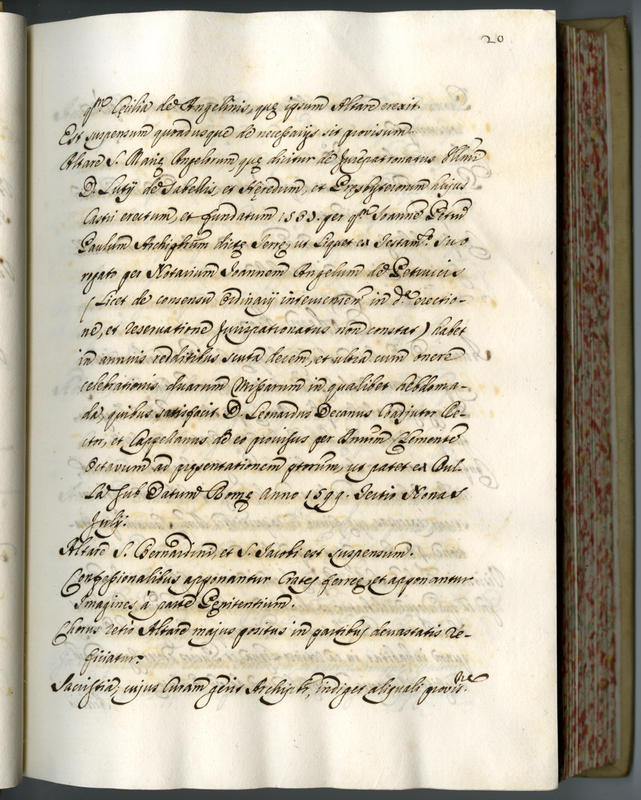 20
q.m Cęcilia de Angelinis, quę ipsum Altare erexit.
Est suspensum quousque de necessarijs sit provisum.
Altare S. Marię Angelorum quę dicitur de Jurepatronatus Illmi
D. Lutij de Sabellis, et Heredum, et Presbyterorum hujus
Castri erectum, et fundatum 1583. per q.m Joannē Petrū
Paulum Archiprm dictę Terrę, ut liquet ex Testamto. Suo
rogato per Notarium Joannem Angelum de Petruciis
( Licet de consensu Ordinarij intervenien in d.a erectio-
nē, et reservatione Jurispatronatus non constat ) habet
in annuis redditibus scuta decem, et ultra cum onere
celebrationis duarum Missarum in qualibet hebdoma-
da, quibus satisfacit D. Leonardus Decanus Coadjutor Re-
ctor, et Cappellanus de eo provisus per Clemente
Octavum ad presentationem ptorum, ut patet ex Bul-
la sub Datum Romę Anno 1599. Tertio Nonas
Julij.
Altare S. Bernardini, et S. Jacobi est suspensum.
Confessionalibus apponantur Crates ferreę, et apponantur
Imagines à parte Pęnitentium.
Chorus retro Altare majus positus in partibus devastatis re-
ficiatur.
Sacristia, cujus Curam gerit Archipr, indiget aliquali provisne